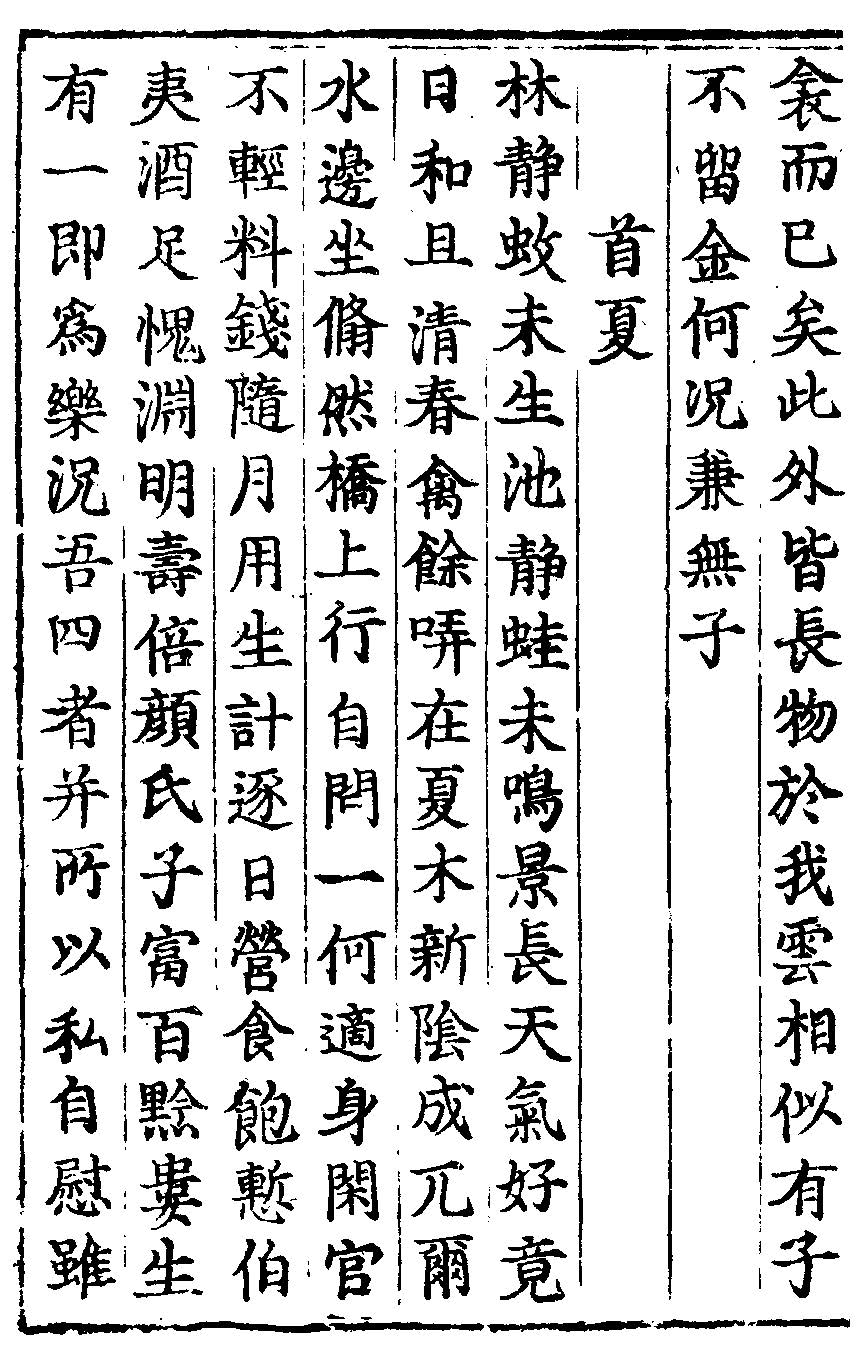 衾而已矣此外皆長物於我雲相似有子
不留金何况兼無子
首夏
林静蚊未生池静蛙未鳴景長天氣好竟
日和且清春禽餘哢在夏木新陰成兀爾
水邊坐翛然橋上行自問一何適身閑官
不輕料錢隨月用生計逐日營食飽慙伯
夷酒足愧淵明壽倍顔氏子富百黔婁生
有一即爲樂况吾四者并所以私自慰雖